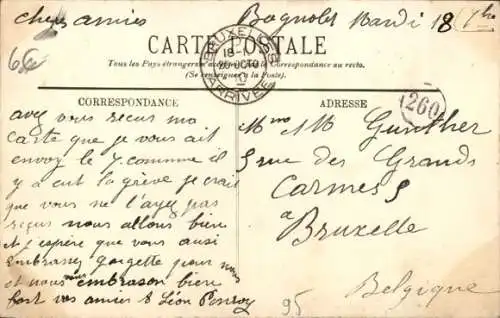 chers amies Bagnolet Mardi 18
66
CARTE POSTALE
Tous les Pays étrangers la Correspondance au recto.
(Se renseigner à la Poste).
BRUXELLES
18-
20 OCTO
ARRIVÉE
CORRESPONDANCE
avez vous recus ma
carte que je vous ait
envoy le 7. comme il
y a eut la grève je crait
que vous ne l'ayez pas
reçus nous allons bien
et j'espère que vous aussi
embrassez Georgette pour nous
et nous vous embrason bien
fort vos amier Léon
ADRESSE
260
Mme MM Gunther
5 rue des Grands
Carmes 5
a
Bruxelle
Belgique
95